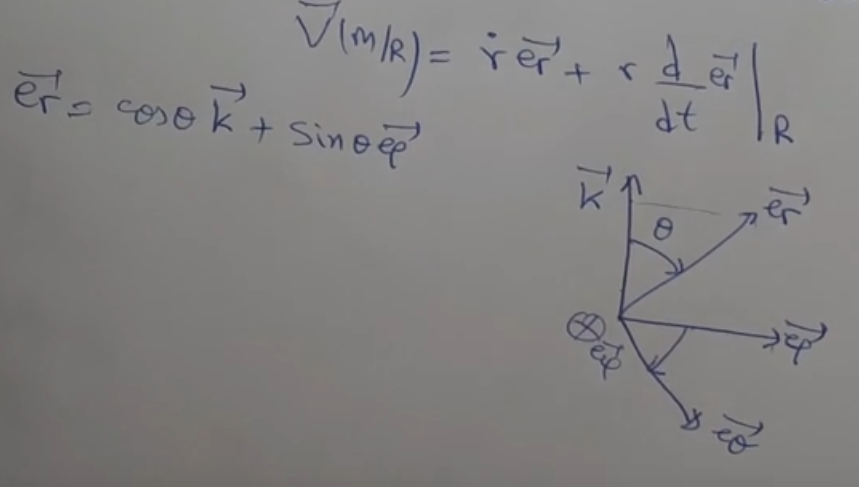 V⃗(M/R) = ṙ e⃗r + r d/dt e⃗r |R
e⃗r = cosθ k⃗ + sinθ e⃗ρ
k⃗
e⃗r
θ
e⃗ρ
e⃗φ
e⃗θ